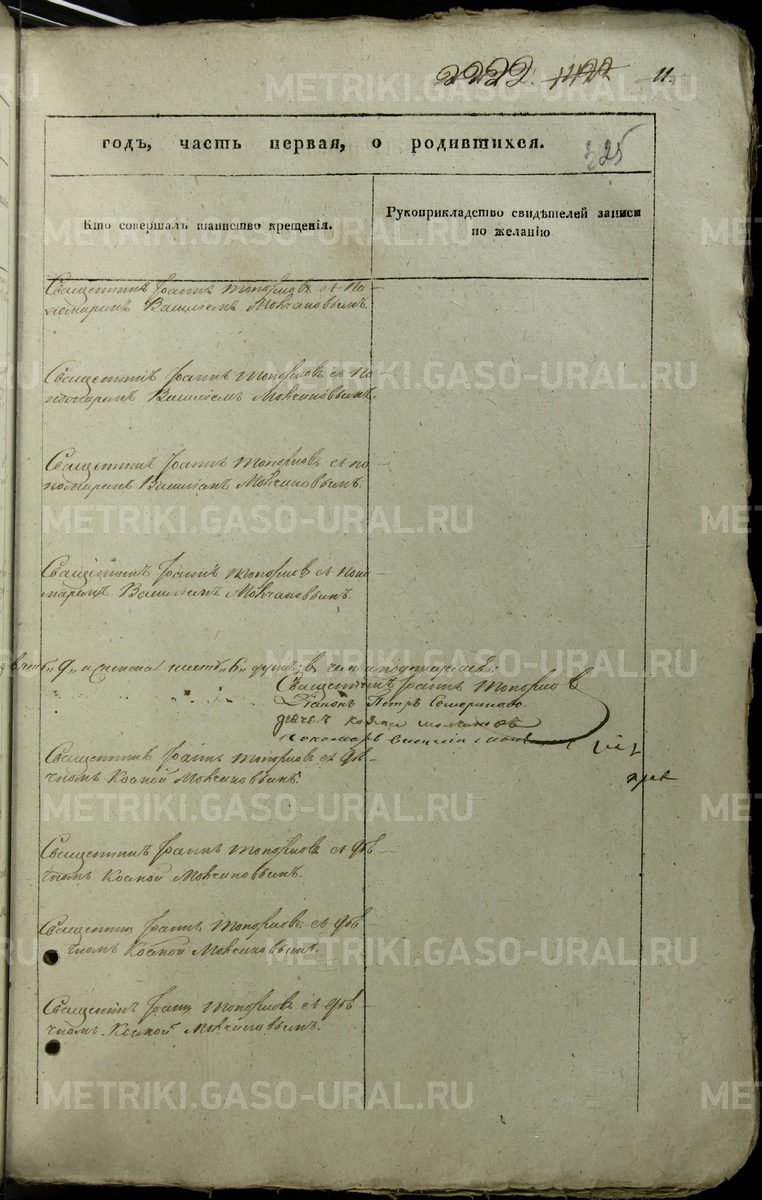 2222. 1422 11.
325
годъ, часть первая, о родившихся.
Кто совершалъ таинство крещенія.
Рукоприкладство свидѣтелей записи
по желанію
Священникъ Іоаннъ Топорковъ съ по-
номаремъ Василіемъ Молчановымъ.
Священникъ Іоаннъ Топорковъ съ по-
номаремъ Василіемъ Молчановымъ.
Священникъ Іоаннъ Топорковъ съ по-
номаремъ Василіемъ Молчановымъ.
Священникъ Іоаннъ Топорковъ съ поно-
маремъ Василіемъ Молчановымъ.
9, и женска шесть, 6, душъ; въ чемъ и подписуемся:
Священникъ Іоаннъ Топорковъ
Діаконъ Петръ
Дьячекъ Козма Молчановъ
Пономарь Василій
Священникъ Іоаннъ Топорковъ съ дья-
чкомъ Космой Молчановымъ.
Священникъ Іоаннъ Топорковъ съ дья-
чкомъ Космой Молчановымъ.
Священникъ Іоаннъ Топорковъ съ дья-
чкомъ Космой Молчановымъ.
Священникъ Іоаннъ Топорковъ съ дья-
чкомъ Космой Молчановымъ.
METRIKI.GASO-URAL.RU